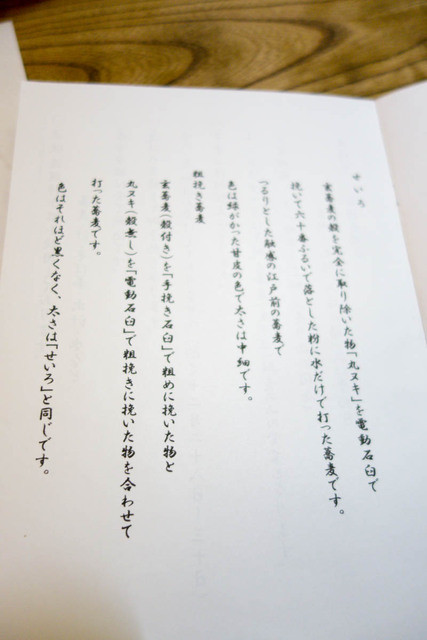 せいろ
玄蕎麦の殻を完全に取り除いた物「丸ヌキ」を電動石臼で
挽いて六十番ふるいで落とした粉に水だけで打った蕎麦です。
つるりとした触感の江戸前の蕎麦で
色は緑がかった甘皮の色で太さは中細です。
粗挽き蕎麦
玄蕎麦(殻付き)を「手挽き石臼」で粗めに挽いた物と
丸ヌキ(殻無し)を「電動石臼」で粗挽きに挽いた物を合わせて
打った蕎麦です。
色はそれほど黒くなく、太さは「せいろ」と同じです。